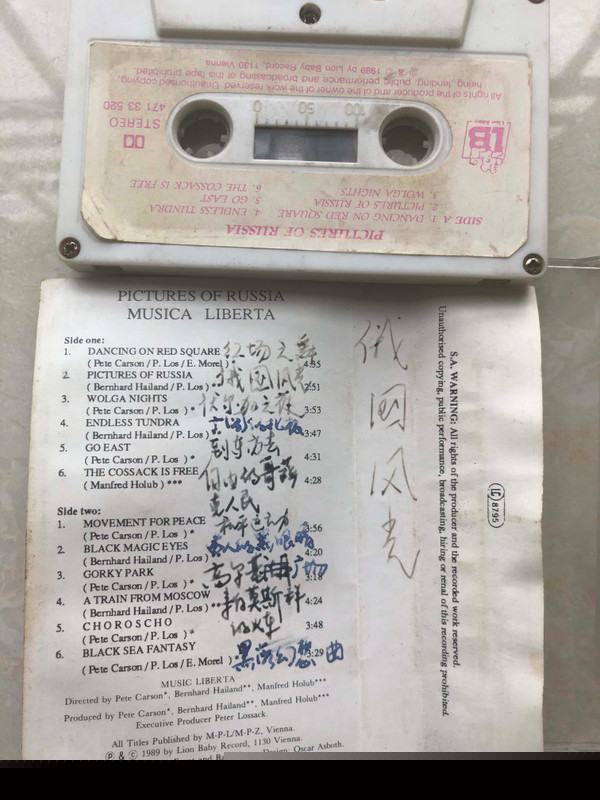 PICTURES OF RUSSIA
SIDE A 1. DANCING ON RED SQUARE 4. ENDLESS TUNDRA
2. PICTURES OF RUSSIA 5. GO EAST
3. WOLGA NIGHTS 6. THE COSSACK IS FREE
LB
STEREO
471 33 520
0 50 100
All rights of the producer and of the owner of the work reserved. Unauthorised copying,
hiring, lending, public performance and broadcasting of this tape prohibited.
1989 by Lion Baby Record, 1130 Vienna
PICTURES OF RUSSIA
MUSICA LIBERTA
Side one:
1. DANCING ON RED SQUARE 红场之舞
( Pete Carson / P. Los / E. Morel ) 4:35
2. PICTURES OF RUSSIA 俄国风光
( Bernhard Hailand / P. Los ) 2:51
3. WOLGA NIGHTS 伏尔加之夜
( Pete Carson / P. Los ) * 3:53
4. ENDLESS TUNDRA
( Bernhard Hailand / P. Los ) 3:47
5. GO EAST 到东方去
( Pete Carson / P. Los ) * 4:31
6. THE COSSACK IS FREE 自由的哥萨
( Manfred Holub ) *** 4:28
克人民
Side two:
1. MOVEMENT FOR PEACE 和平运动
( Pete Carson / P. Los ) * 3:56
2. BLACK MAGIC EYES 的黑眼睛
( Bernhard Hailand / P. Los ) 4:20
3. GORKY PARK 高尔基 广场
( Pete Carson / P. Los ) * 3:18
4. A TRAIN FROM MOSCOW 莫斯科
( Bernhard Hailand / P. Los ) ** 4:24
5. CHOROSCHO 的火车
( Pete Carson / P. Los ) * 3:48
6. BLACK SEA FANTASY 黑海幻想曲
( Pete Carson / P. Los / E. Morel ) 3:29
MUSIC LIBERTA
Directed by Pete Carson*, Bernhard Hailand**, Manfred Holub***
Produced by Pete Carson*, Bernhard Hailand**, Manfred Holub***
Executive Producer Peter Lossack.
All Titles Published by M-P-L/M-P-Z, Vienna.
℗ & © 1989 by Lion Baby Record, 1130 Vienna.
Design: Oscar Asboth.
俄国风光
S.A. WARNING: All rights of the producer and the recorded work reserved.
Unauthorised copying, public performance, broadcasting, hiring or renal of this recording prohibited.
LC 8795